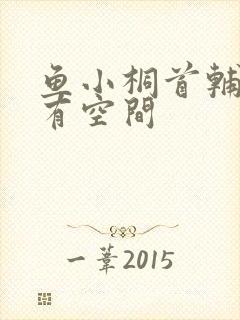 鱼小桐首輔
有空間
一葦2015